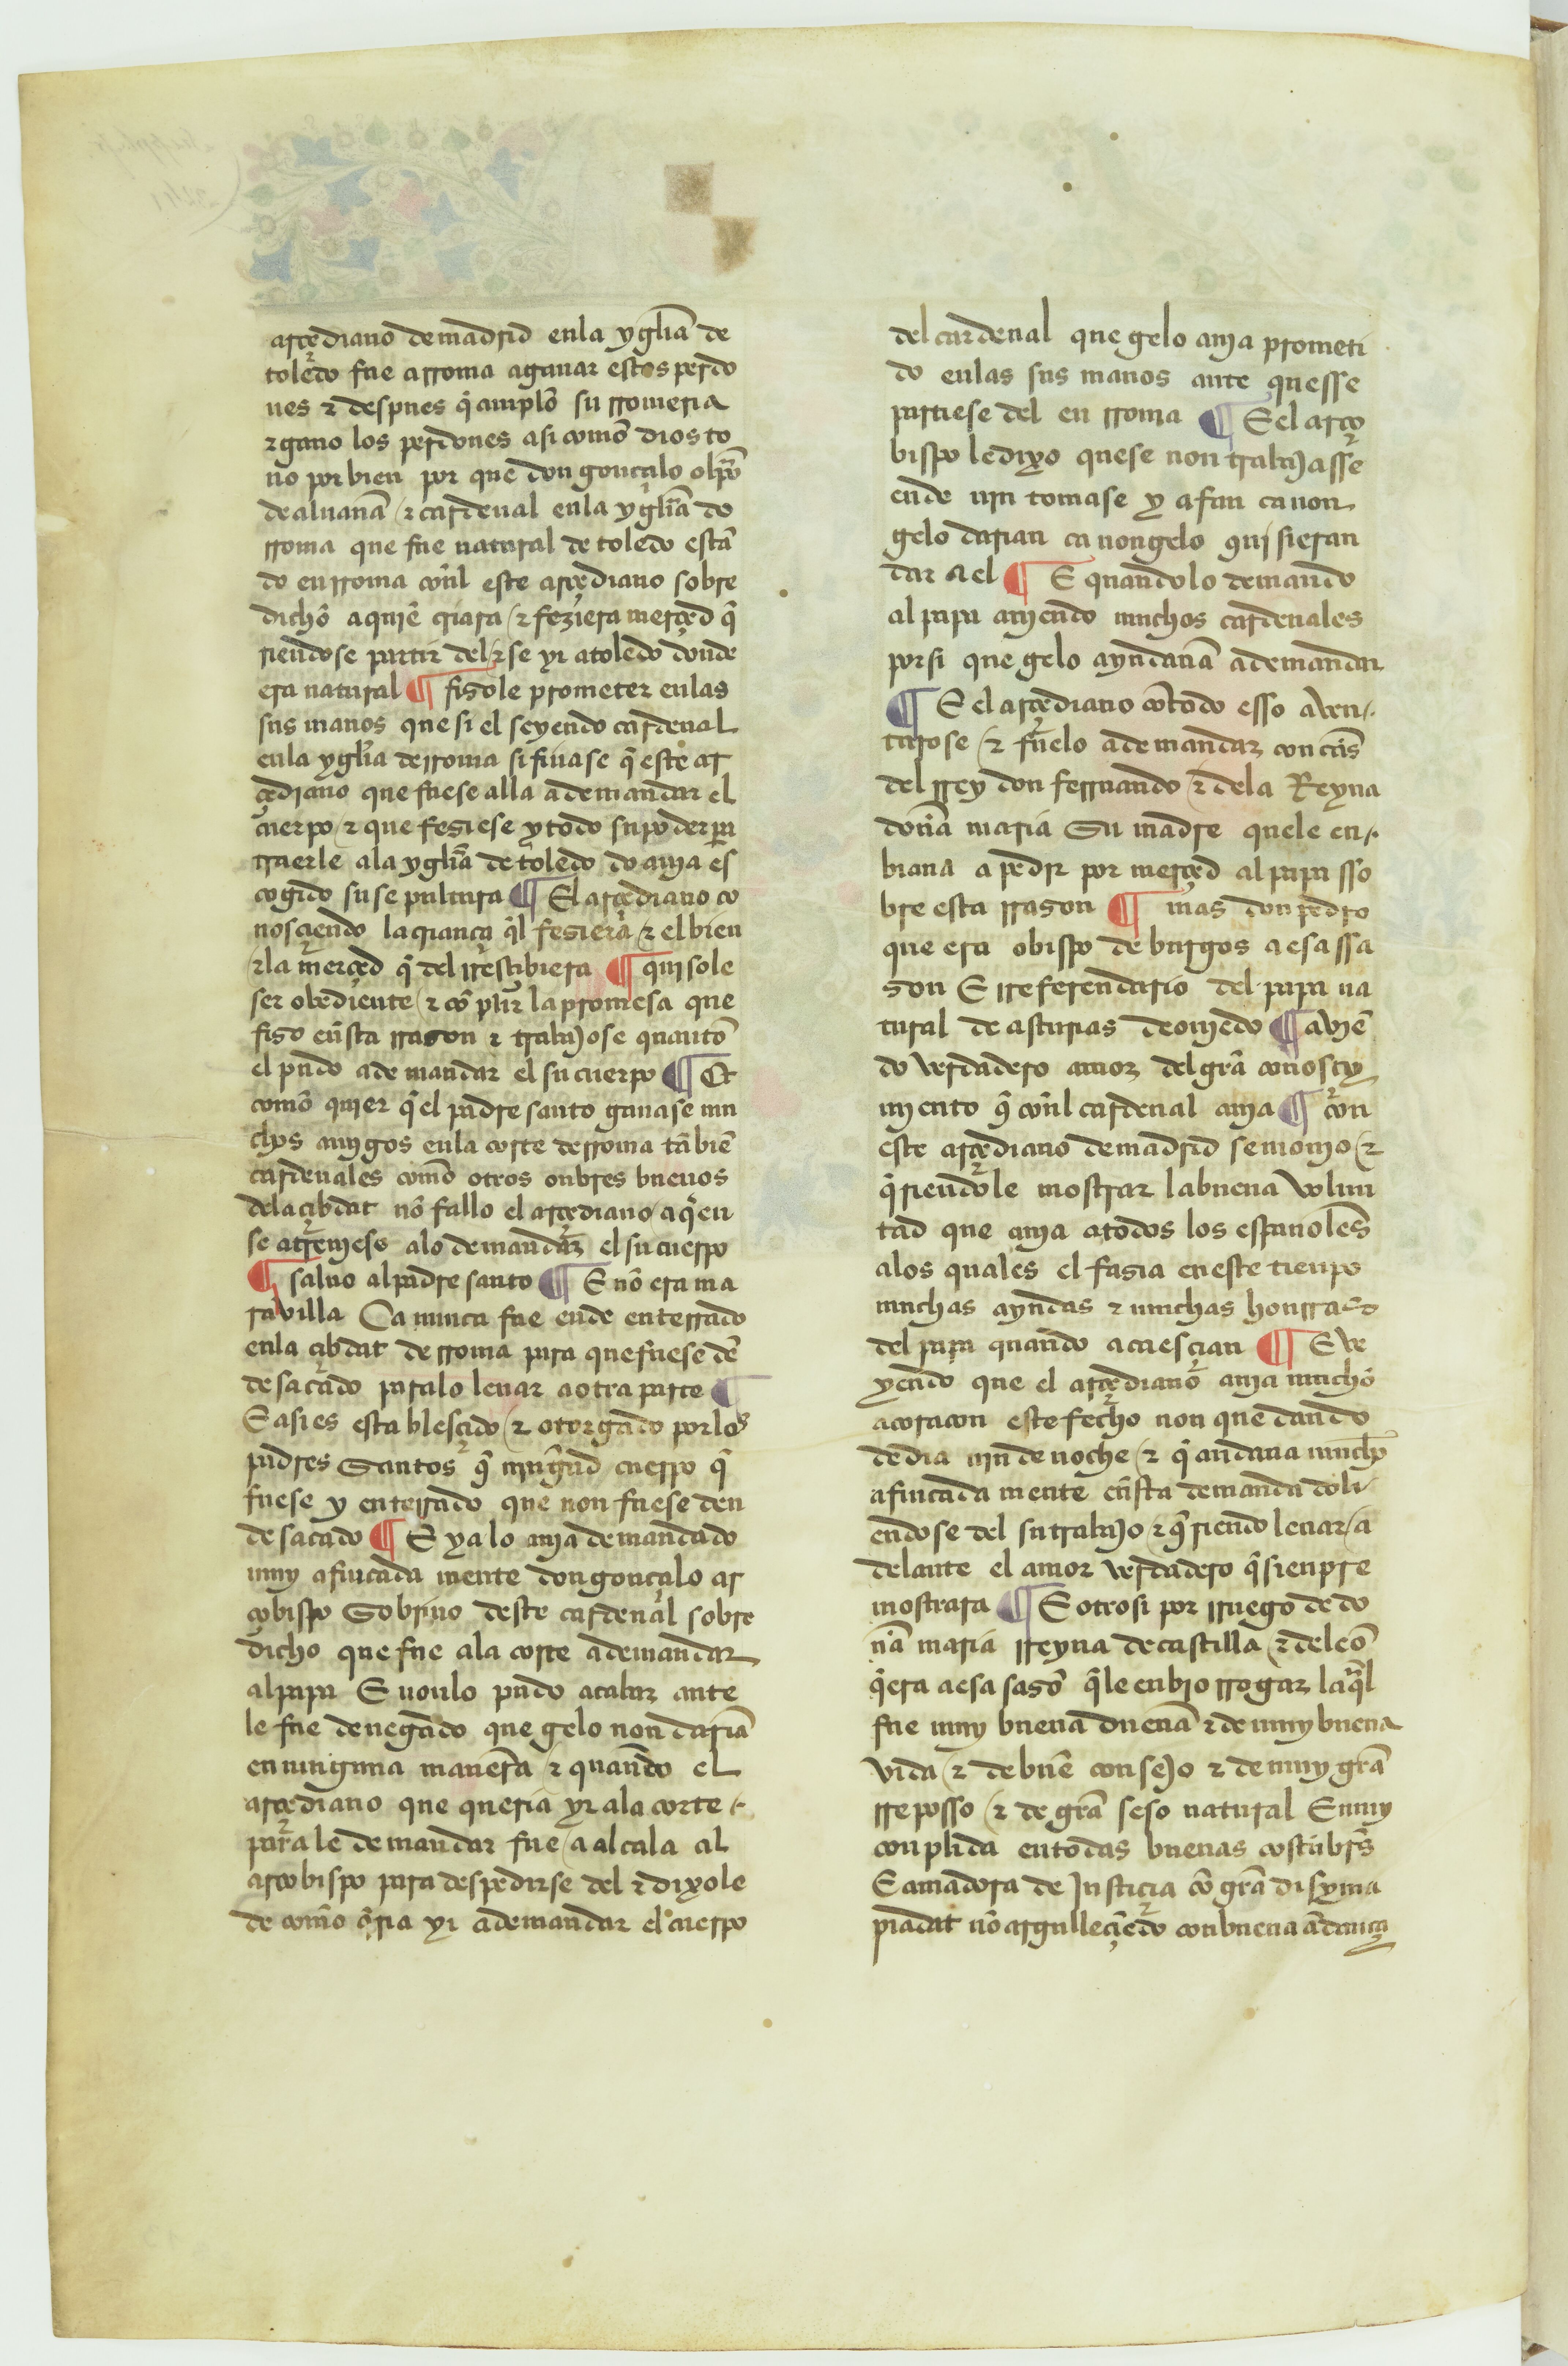 arçediano de madrid en la yglia de
toledo fue a rroma a ganar estos perdo
nes & despues q̃ cunplio su rromeria
& gano los perdones asi como dios to
uo por bien por que don gonçalo obpõ
de aluana & cardenal en la yglia de
rroma que fue natural de toledo estã
do en rroma cõnl este arçediano sobre
dicho a quiẽ criara & feziera merçed q̃
riendose partir del & se yr a toledo donde
era natural ¶ fisole prometer en las
sus manos que si el seyendo cardenal
en la yglia de rroma si finase q̃ este ar
çediano que fuese alla a demandar el
cuerpo & que fesiese y todo su poder pa
traerle a la yglia de toledo do auja es
cogido su sepultura ¶ El arçediano co
nosçiendo la criança q̃l fesiera & el bien
& la merçed q̃ del rresçibiera ¶ qujsole
ser obediente & cõplir la promesa que
fiso en̄sta rrason & trabajose quanto
el pudo a demandar el su cuerpo ¶ Et
como quier q̃ el padre santo ganase mu
chos amjgos en la corte de rroma tã biẽ
cardenales como otros onbres buenos
de la çibdat nõ fallo el arçediano a q̃en
se atreujese a lo demandar el su cuerpo
¶ saluo al padre santo ¶ E nõ era ma
rauilla Ca nunca fue ende enterrado
en la çibdat de rroma para que fuese dẽ
de sacado para lo leuar a otra parte ¶
E asi es establesçido & otorgado por los
padres Santos q̃ njngud cuerpo q̃
fuese y enterrado que non fuese den
de sacado ¶ E ya lo auja demandado
muy afincada mente don gonçalo ar
çobispo Sobrino deste cardenal sobre
dicho que fue a la corte a demandar
al papa E non lo pudo acabar ante
le fue denegado que gelo non daria
en ninguna manera & quando el
arçediano que queria yr a la corte
para le demandar fue a alcala al
arçobispo para despedirse del & dixole
de como q̃ria yr a demandar el cuerpo
del cardenal que gelo auja prometi
do en las sus manos ante quesse
partiese del en rroma ¶ E el arço
bispo le dixo quese non trabajasse
ende njn tomase y afan ca non
gelo darian ca non gelo qujsieran
dar a el ¶ E quando lo demando
al papa aujendo muchos cardenales
por si que gelo ayudauã a demandar
¶ E el arçediano cõ todo esso aven
turose & fuelo a demandar con cãs
del rrey don ferrnando & de la Reyna
doña maria Su madre quele en
biaua a pedir por merçed al papa sso
bre esta rrason ¶ mas don pedro
que era obispo de burgos a esa ssa
son E rreferendario del papa na
tural de asturias de oujedo ¶ avjẽ
do verdadero amor del grã conosçy
mjento q̃ cõnl cardenal auja ¶ con
este arçediano de madrid se moujo &
q̃riendole mostrar la buena volun
tad que auja a todos los españoles
a los quales el fasia en este tienpo
muchas ayudas & muchas honrras
del papa quando acaesçian ¶ E ve
yendo que el arçediano auja mucho
a coraçon este fecho non quedando
de dia njn de noche & q̃ andaua mucho
afincada mente en̄sta demanda doli
endose del su trabajo & q̃riendo leuar a
delante el amor verdadero q̃ sienpre
mostrara ¶ E otrosi por rruego de do
ña maria rreyna de castilla & de leõ
q̃ era a esa sasõ q̃ le enbio rrogar la q̃l
fue muy buena dueña & de muy buena
vida & de buẽ consejo & de muy grã
rreposso & de grã seso natural E muy
conplida en todas buenas costũbrs
E amadora de Justiçia cõ grã disyma
piadat nõ argulleçiẽdo con buena ãdança